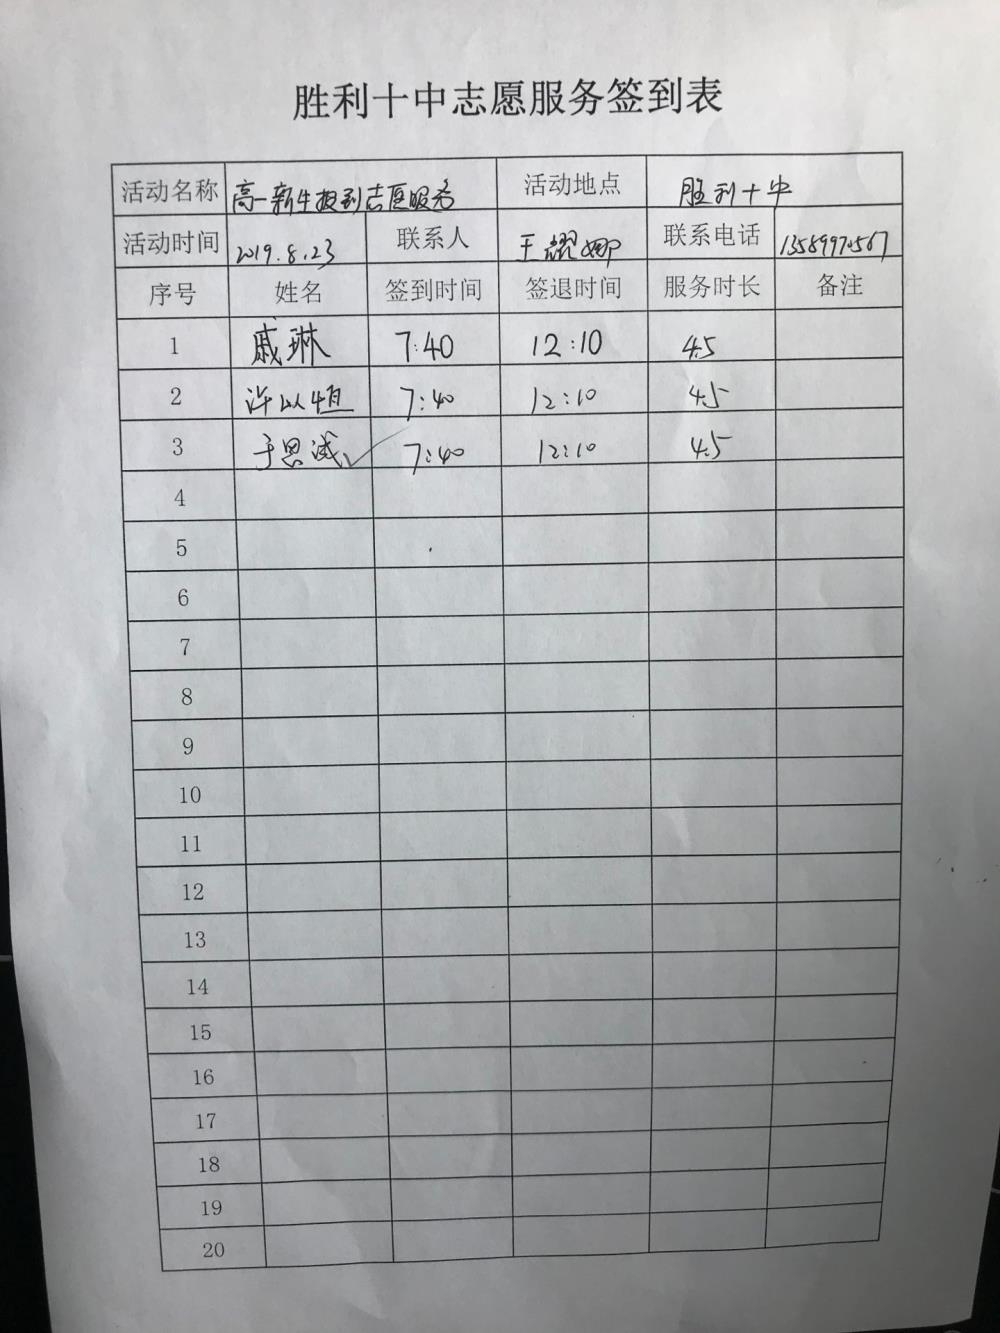 胜利十中志愿服务签到表
活动名称 高一新生报到志愿服务 活动地点 胜利十中
活动时间 2019.8.23 联系人 王耀娜 联系电话
序号 姓名 签到时间 签退时间 服务时长 备注
1 戚琳 7:40 12:10 4.5
2 许以恒 7:40 12:10 4.5
3 于思诚 7:40 12:10 4.5
4
5
6
7
8
9
10
11
12
13
14
15
16
17
18
19
20